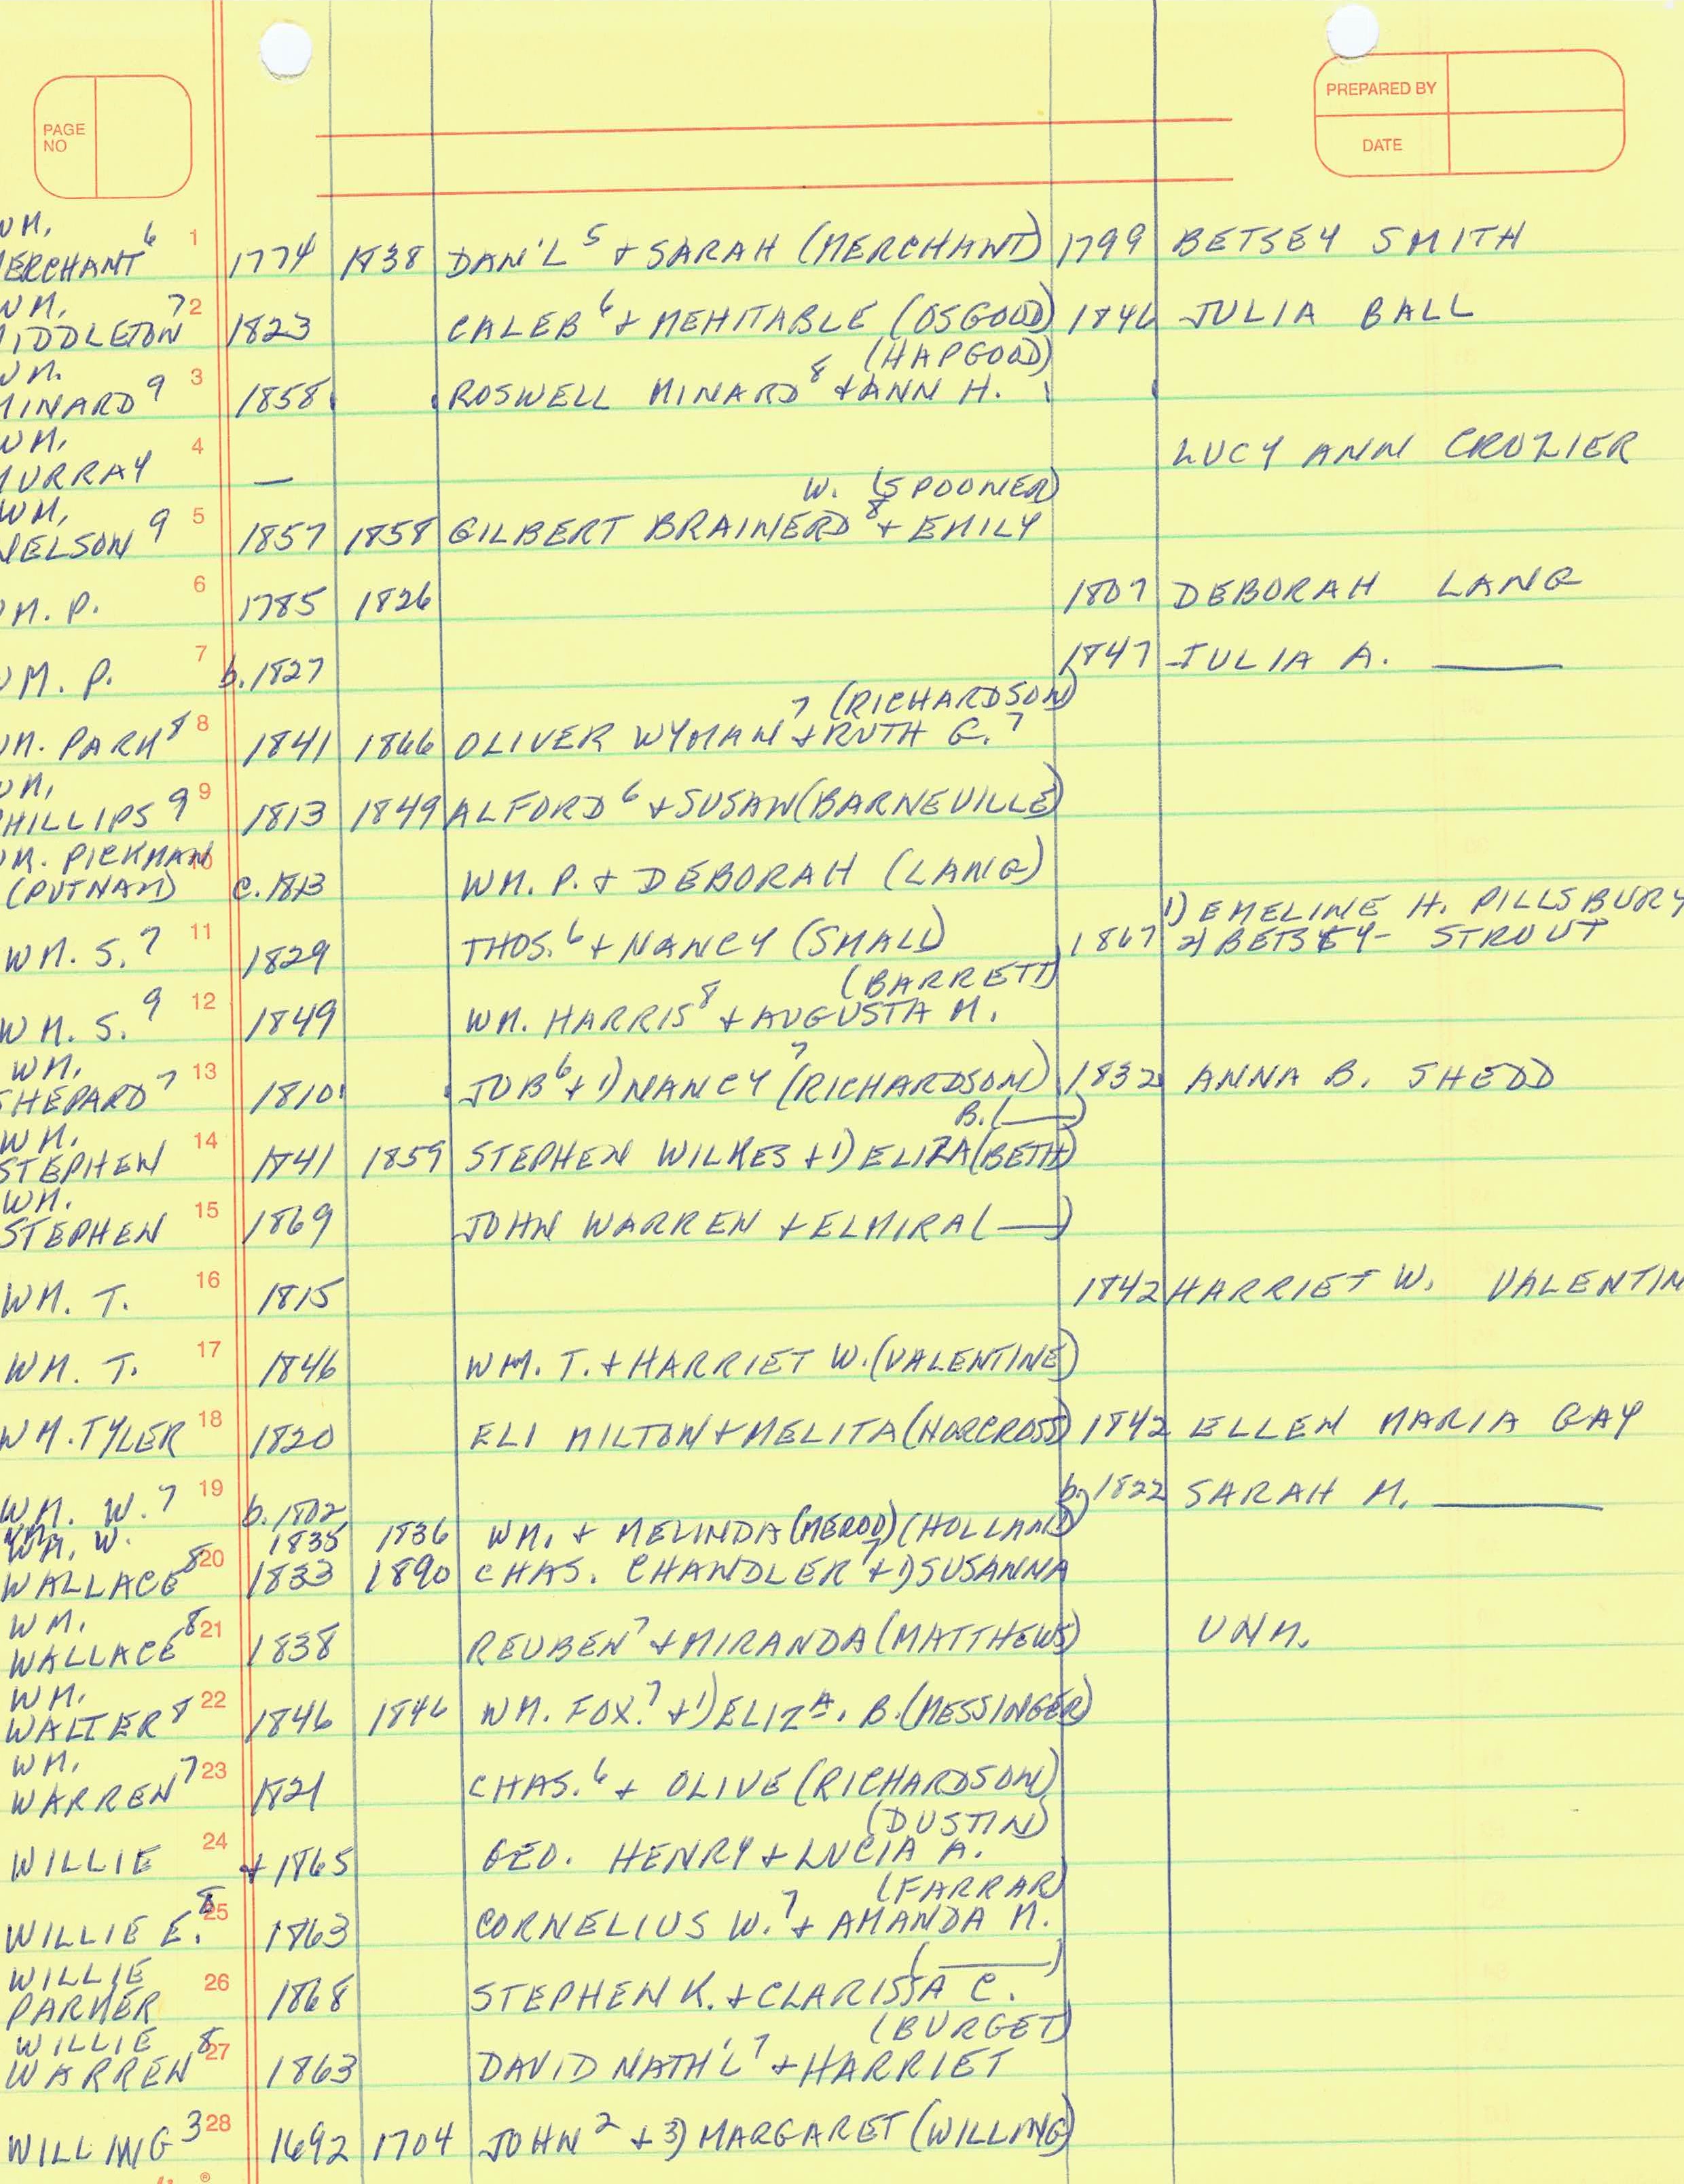 PAGE NO
PREPARED BY
DATE
WM.
MERCHANT 6 1 1774 1838 DAN'L 5 + SARAH (MERCHANT) 1799 BETSEY SMITH
WM. 7 2
MIDDLETON 1823 CALEB 6 + MEHITABLE (OSGOOD) 1846 JULIA BALL
WM. (HAPGOOD)
MINARD 9 3 1858 ROSWELL MINARD 8 + ANN H.
WM. 4 LUCY ANN CROZIER
MURRAY —
WM. W. (SPOONER)
NELSON 9 5 1857 1858 GILBERT BRAINERD 8 + EMILY
WM. P. 6 1785 1826 1807 DEBORAH LANG
WM. P. 7 b. 1827 1847 JULIA A. ____
(RICHARDSON)
WM. PARK 8 8 1841 1866 OLIVER WYMAN 7 + RUTH G. 7
WM.
PHILLIPS 9 9 1813 1849 ALFORD 6 + SUSAN (BARNEVILLE)
WM. PICKMAN 10
(PUTNAM) c. 1813 WM. P. + DEBORAH (LANG)
1) EMELINE H. PILLSBURY
WM. S. 7 11 1829 THOS. 6 + NANCY (SMALL) 1867 2) BETSEY STROUT
(BARRETT)
WM. S. 9 12 1849 WM. HARRIS 8 + AUGUSTA M.
WM.
SHEPARD 7 13 1810 JOB 6 + 1) NANCY 7 (RICHARDSON) 1832 ANNA B. SHEDD
WM. B. (___)
STEPHEN 14 1841 1859 STEPHEN WILKES + 1) ELIZA(BETH)
WM.
STEPHEN 15 1869 JOHN WARREN + ELMIRA (___)
WM. T. 16 1815 1842 HARRIET W. VALENTIN
WM. T. 17 1846 WM. T. + HARRIET W. (VALENTINE)
WM. TYLER 18 1820 ELI MILTON + MELITA (NORCROSS) 1842 ELLEN MARIA GAY
WM. W. 7 19 b. 1802 b. 1822 SARAH M. ____
WM. W. 1835 1836 WM. + MELINDA (MEROD) (HOLLAND)
WALLACE 8 20 1833 1890 CHAS. CHANDLER 7 + 1) SUSANNA
WM.
WALLACE 8 21 1838 REUBEN 7 + MIRANDA (MATTHEWS) UNM.
WM.
WALTER 8 22 1846 1846 WM. FOX. 7 + 1) ELIZA. B. (MESSINGER)
WM.
WARREN 7 23 1821 CHAS. 6 + OLIVE (RICHARDSON)
(DUSTIN)
WILLIE 24 + 1865 GEO. HENRY + LUCIA A.
(FARRAR)
WILLIE E. 8 25 1863 CORNELIUS W. 7 + AMANDA M.
WILLIE (____)
PARKER 26 1868 STEPHEN K. + CLARISSA C.
WILLIE (BURGET)
WARREN 8 27 1863 DAVID NATH'L 7 + HARRIET
WILLING 3 28 1692 1704 JOHN 2 + 3) MARGARET (WILLING)